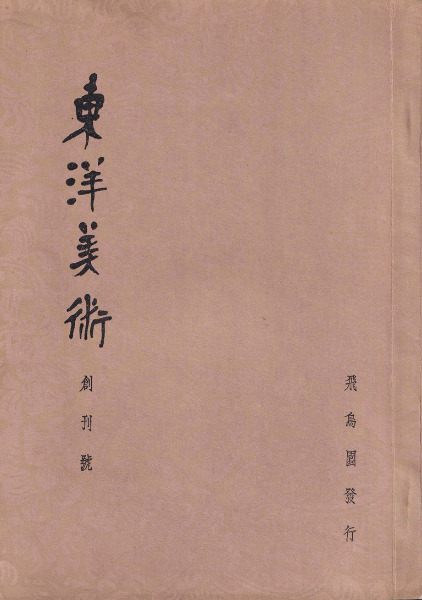 東洋美術
創刊號
飛鳥園發行